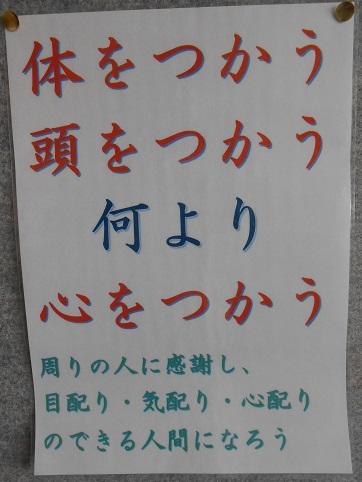 体をつかう
頭をつかう
何より
心をつかう
周りの人に感謝し、
目配り・気配り・心配り
のできる人間になろう